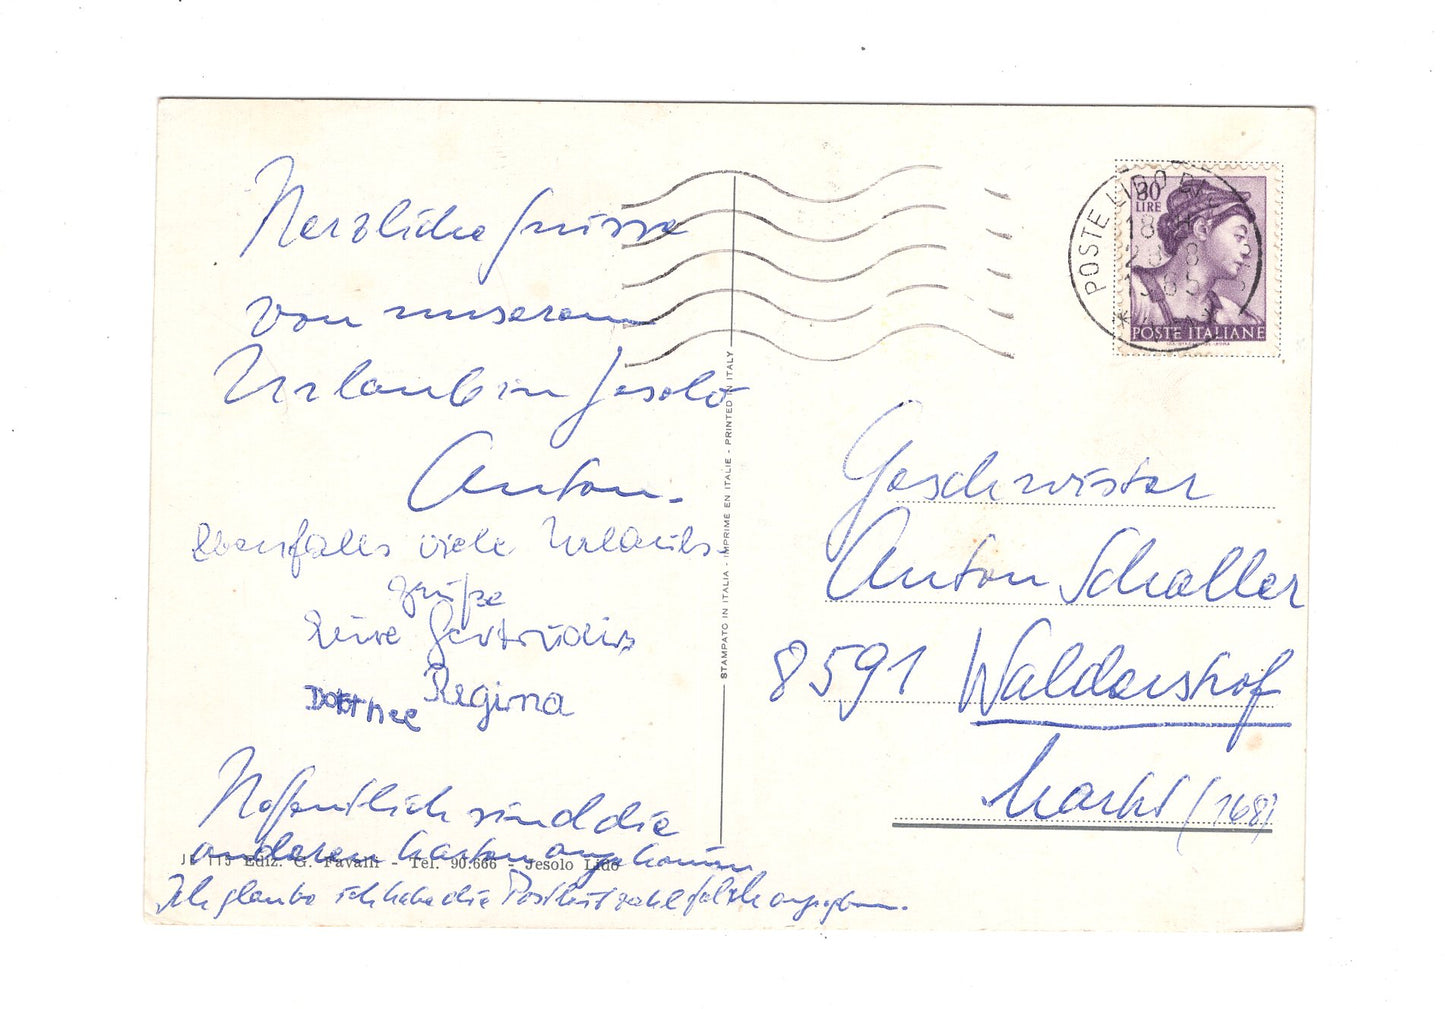 Herzliche Grüsse
von unserem
Urlaub in Jesolo
Anton.
Ebenfalls viele Urlaubs-
grüße
Eure Gertrudis
Regina
Dorthee
Hoffentlich sind die
anderen Karten angekommen
Ich glaube ich habe die Postleitzahl falsch angegeben.
Ediz. G. Pavalli - Tel. 90.666 - Jesolo Lido
STAMPATO IN ITALIA - IMPRIME EN ITALIE - PRINTED IN ITALY
30
LIRE
POSTE ITALIANE
POSTE LIDO DI
18
1965
Geschwister
Anton Schaller
8591 Waldershof
Markt (168)